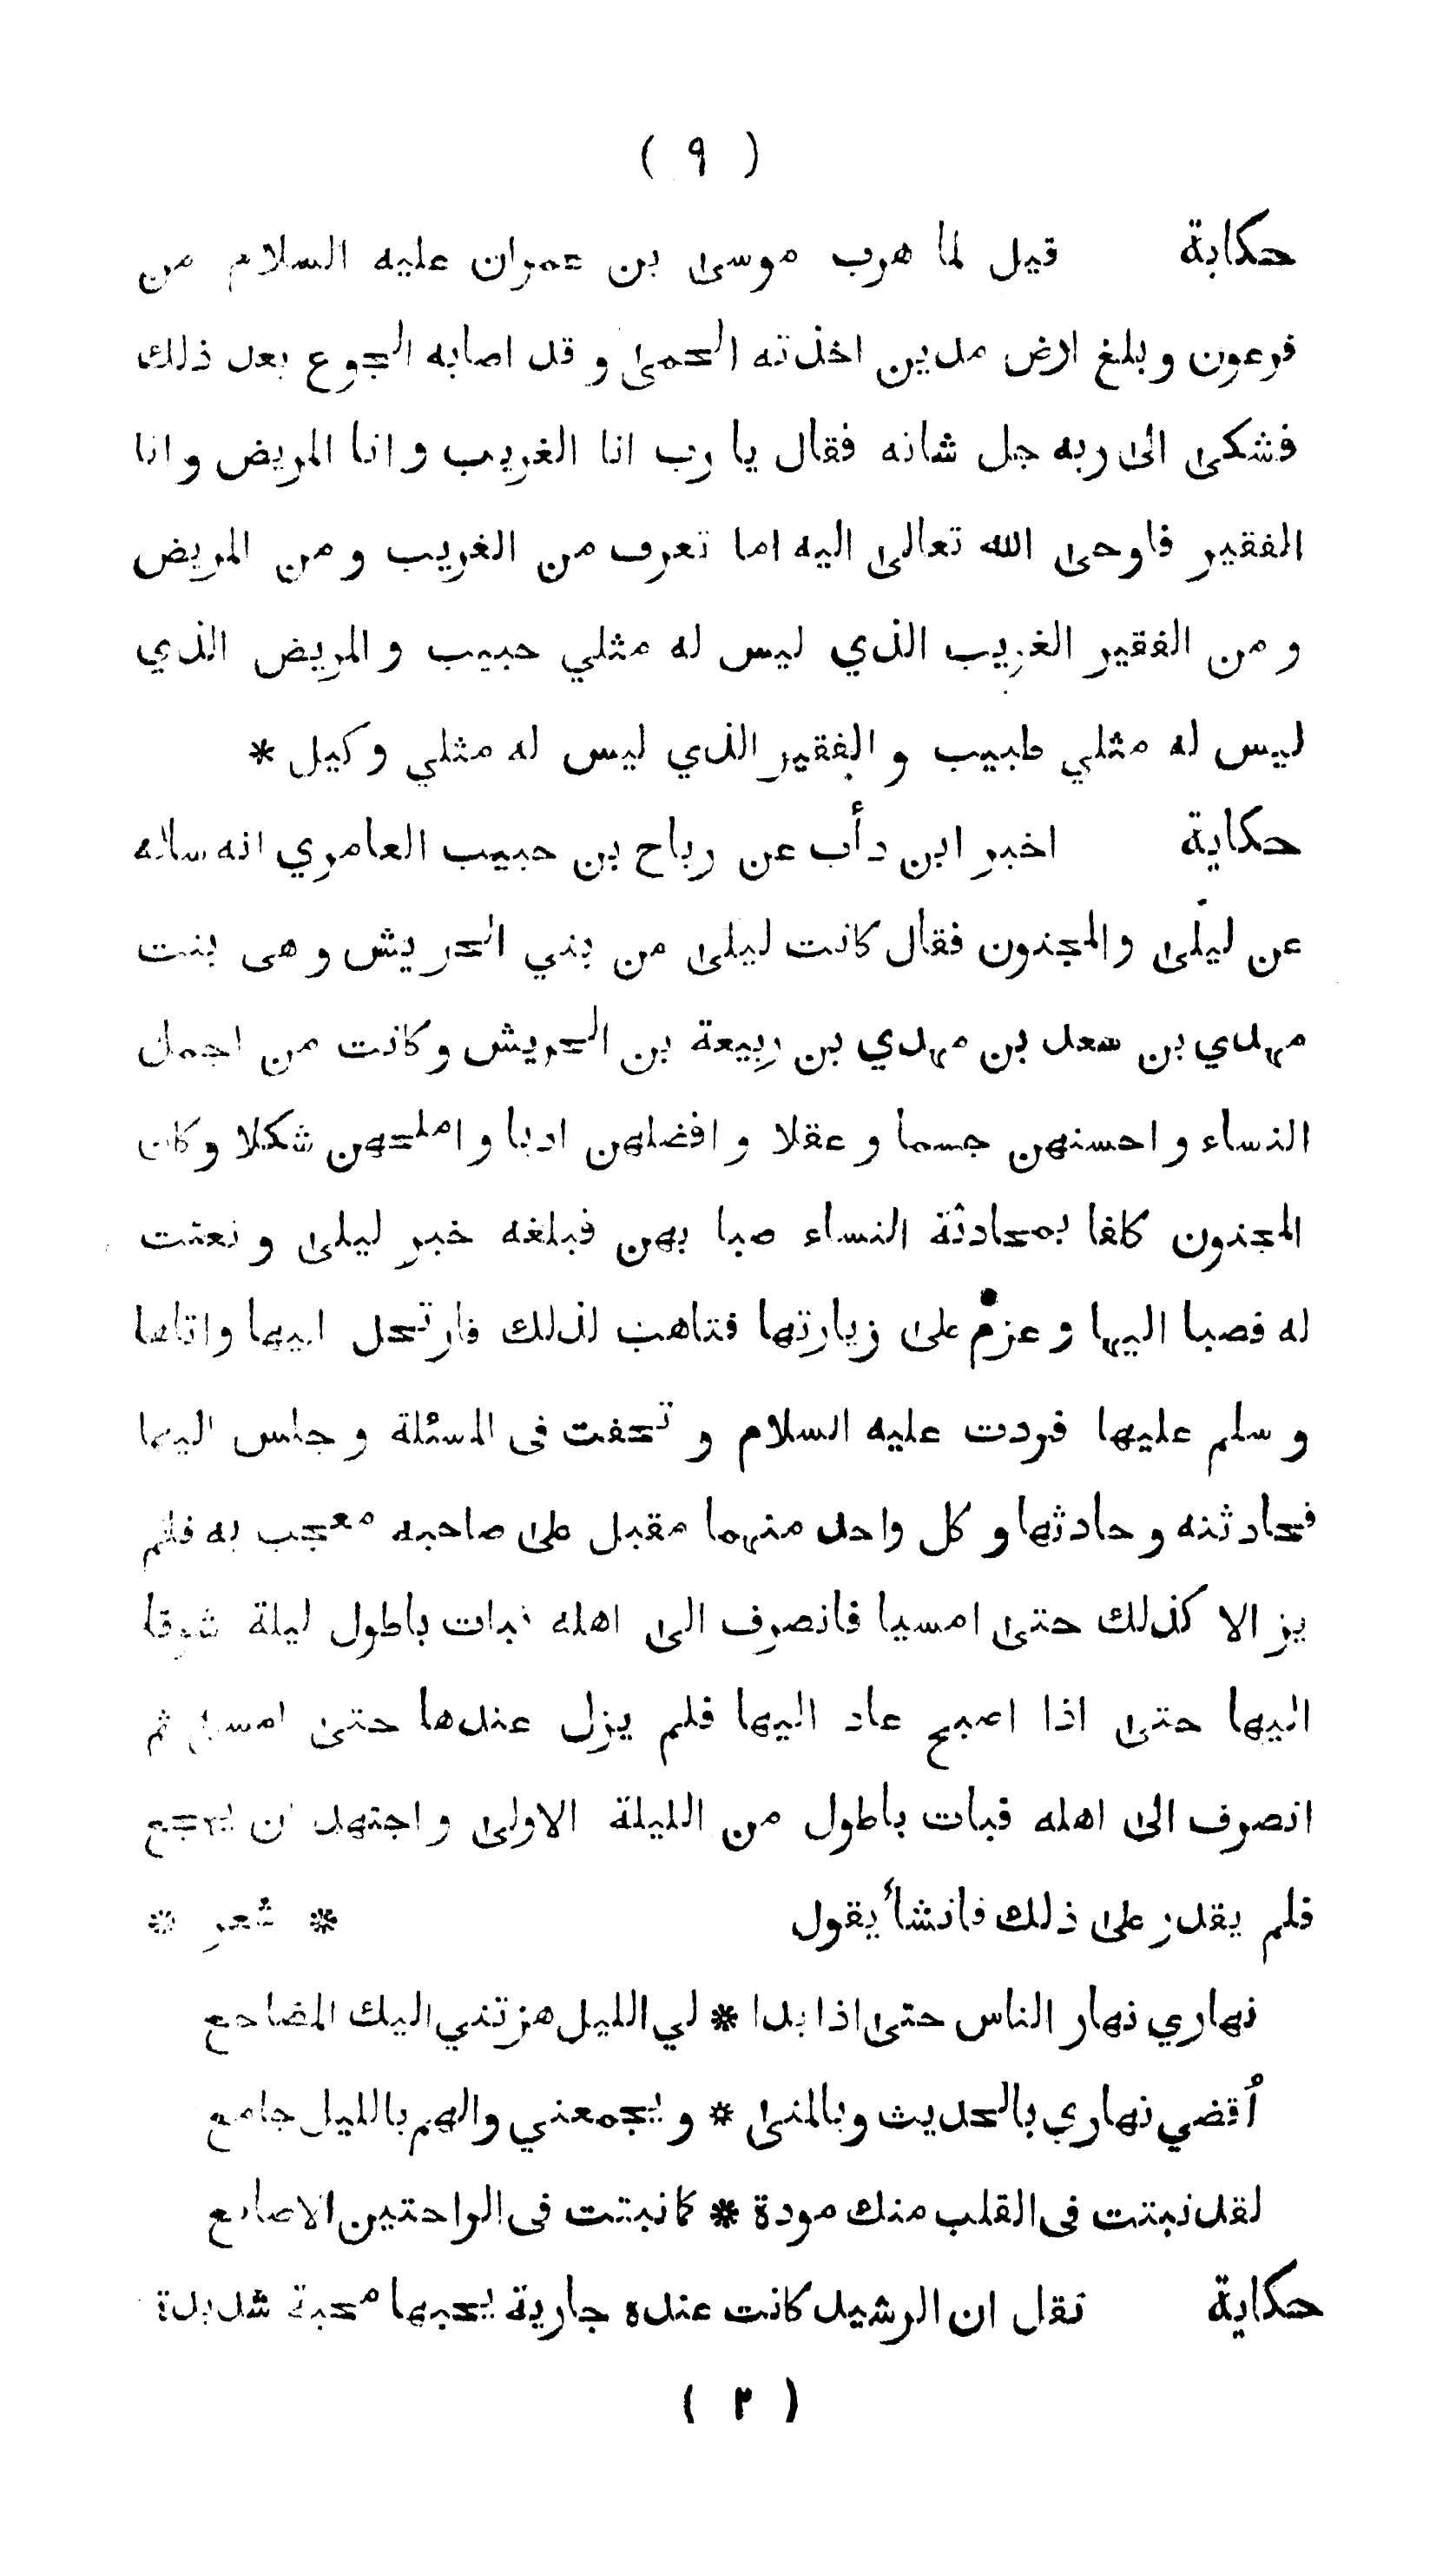 ( ٩ )
حكاية قيل لما هرب موسى بن عمران عليه السلام من
فرعون و بلغ ارض مدين اخذته الحمى و قد اصابه الجوع بعد ذلك
فشكى الى ربه جل شانه فقال يا رب انا الغريب و انا المريض و انا
الفقير فاوحى الله تعالى اليه اما تعرف من الغريب و من المريض
و من الفقير الغريب الذي ليس له مثلي حبيب و المريض الذي
ليس له مثلي طبيب و الفقير الذي ليس له مثلي وكيل *
حكاية اخبر ابن دأب عن رباح بن حبيب العامري انه ساله
عن ليلى والمجنون فقال كانت ليلى من بني الحريش و هى بنت
مهدي بن سعد بن مهدي بن ربيعة بن الحريش وكانت من اجمل
النساء و احسنهن جسما و عقلا و افضلهن ادبا و املحهن شكلا وكان
المجنون كلفا بمحادثة النساء صبا بهن فبلغه خبر ليلى و نعتت
له فصبا اليها و عزم على زيارتها فتاهب لذلك فارتحل اليها واتاها
و سلم عليها فردت عليه السلام و تحفت فى المسئلة و جلس اليها
فحادثته و حادثها و كل واحد منهما مقبل على صاحبه معجب به فلم
يزالا كذلك حتى امسيا فانصرف الى اهله فبات باطول ليلة شوقا
اليها حتى اذا اصبح عاد اليها فلم يزل عندها حتى امسى ثم
انصرف الى اهله فبات باطول من الليلة الاولى و اجتهد ان يهجع
فلم يقدر على ذلك فانشأ يقول * شعر *
نهاري نهار الناس حتى اذا بدا * لي الليل هزتني اليك المضاجع
أقضي نهاري بالحديث وبالمنى * و يجمعني والهم بالليل جامع
لقد نبتت فى القلب منك مودة * كما نبتت فى الراحتين الاصابع
حكاية نقل ان الرشيد كانت عنده جارية يحبها محبة شديدة
( ٢ )